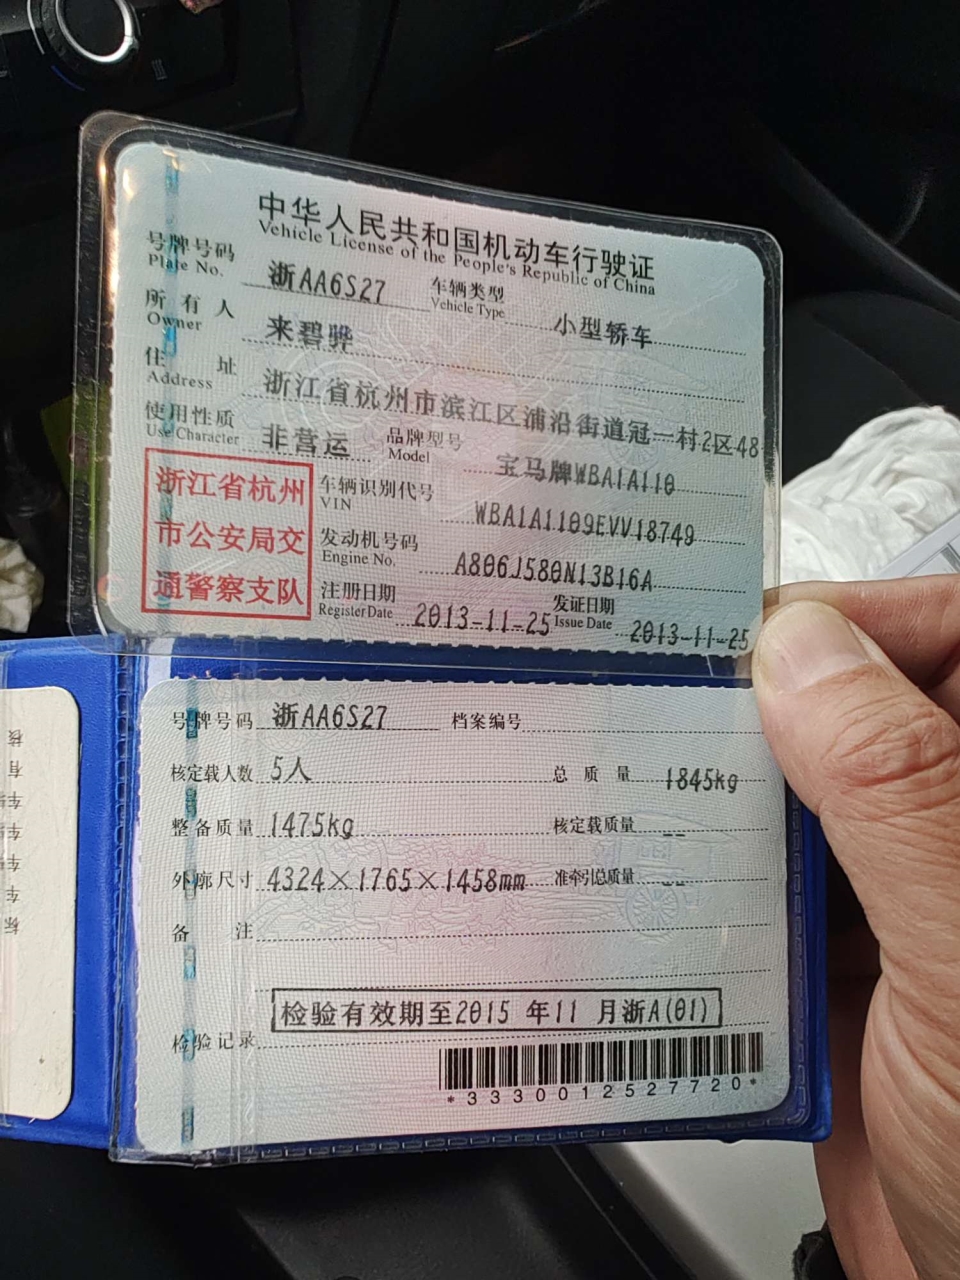 中华人民共和国机动车行驶证
Vehicle License of the People's Republic of China
号牌号码 浙AA6S27 车辆类型 小型轿车
Plate No. Vehicle Type
所有人 来碧骅
Owner
住址 浙江省杭州市滨江区浦沿街道冠一村2区48
Address
使用性质 非营运 品牌型号 宝马牌WBA1A110
Use Character Model
浙江省杭州
市公安局交
通警察支队
车辆识别代号 WBA1A1109EVV18749
VIN
发动机号码 A806J580N13B16A
Engine No.
注册日期 2013-11-25 发证日期 2013-11-25
Register Date Issue Date
号牌号码 浙AA6S27 档案编号
核定载人数 5人 总质量 1845kg
整备质量 1475kg 核定载质量 --
外廓尺寸 4324×1765×1458mm 准牵引总质量 --
备注
检验有效期至2015 年11 月浙A(01)
检验记录
*3330012527720*